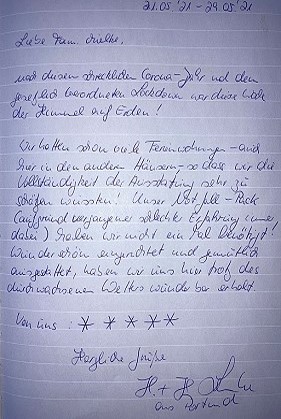 21.05.'21 - 29.05.'21
Liebe Fam.
nach diesem schrecklichen Corona-Jahr und dem
verordneten Lockdown war diese Woche
der Himmel auf Erden!
Wir hatten schon viele Ferienwohnungen - auch
hier in den anderen Häusern - so dass wir die
Vollständigkeit der Ausstattung sehr zu
schätzen wussten! Unser Notfall-Pack
(aufgrund vergangener schlechter Erfahrung immer
dabei) haben wir nicht ein Mal benötigt!
Wunderschön eingerichtet und gemütlich
ausgestattet, haben wir uns hier trotz des
durchwachsenen Wetters wunderbar erholt.
Von uns : * * * * *
Herzliche Grüße
H. + H.
aus Dortmund